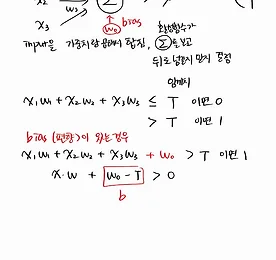 x₂ w₂ Σ
x₃ w₀ bias 활성함수가
input을 가중치랑 곱해서 합침, Σ을 보고
뒤로 넘길지 말지 결정
임계치
x₁w₁ + x₂w₂ + x₃w₃ ≤ T 이면 0
> T 이면 1
bias (편향)이 있는경우
x₁w₁ + x₂w₂ + x₃w₃ + w₀ > T 이면 1
x·w + w₀ - T > 0
b